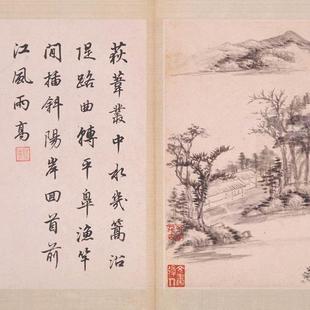 荻葦叢中水幾篙沿
隄路曲轉平皋漁竿
閒插斜陽岸回首前
江風雨高